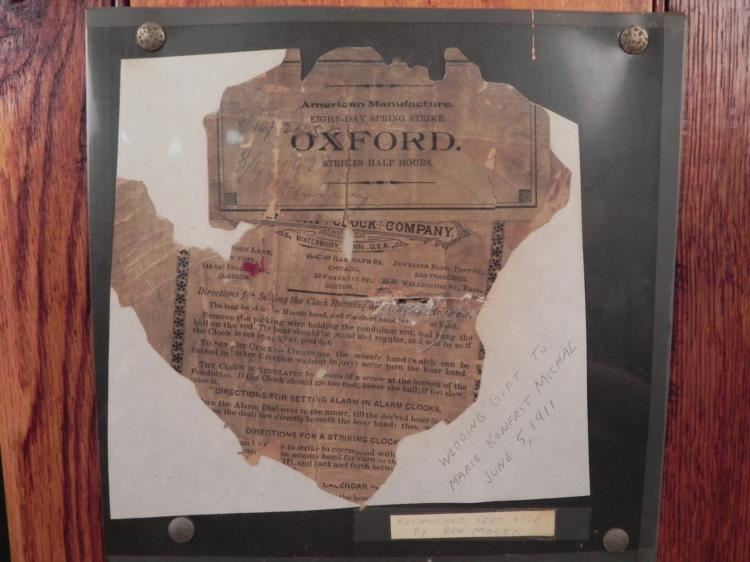 American Manufacture.
EIGHT-DAY SPRING STRIKE
OXFORD.
STRIKES HALF HOURS.
CLOCK COMPANY,
WATERBURY, CONN., U.S.A.
LANE,
YORK.
GLASGOW.
45-47-49 RANDOLPH ST.
CHICAGO.
53 FRANKLIN ST.,
BOSTON.
JEWELERS BLDG. POST ST.
SAN FRANCISCO.
WELLINGTON ST., EAST,
Directions for Setting the Clock Running
The long hand is the Minute hand, and the short hand hand.
Remove the packing wire holding the pendulum rod, and hang the
ball on the rod. The beat should be equal and regular, and will be so if
the Clock is set in a level position
TO SET THE CLOCK—Always use the minute hand (which can be
turned in either direction without injury) never turn the hour hand.
THE CLOCK IS REGULATED by means of a screw at the bottom of the
Pendulum. If the Clock should go too fast, lower the ball; if too slow,
raise it.
DIRECTIONS FOR SETTING ALARM IN ALARM CLOCKS.
the Alarm Dial over to the RIGHT, till the desired hour
on the dial) lies directly beneath the hour hand; then
DIRECTIONS FOR A STRIKING CLOCK
to strike to correspond with
the minute hand forward to
III, and back and forth between
CALENDAR
the hour
WEDDING GIFT TO
MARIE KONFRST MICHAL
JUNE 5, 1911
REFINISHED SEPT.
BY BEN